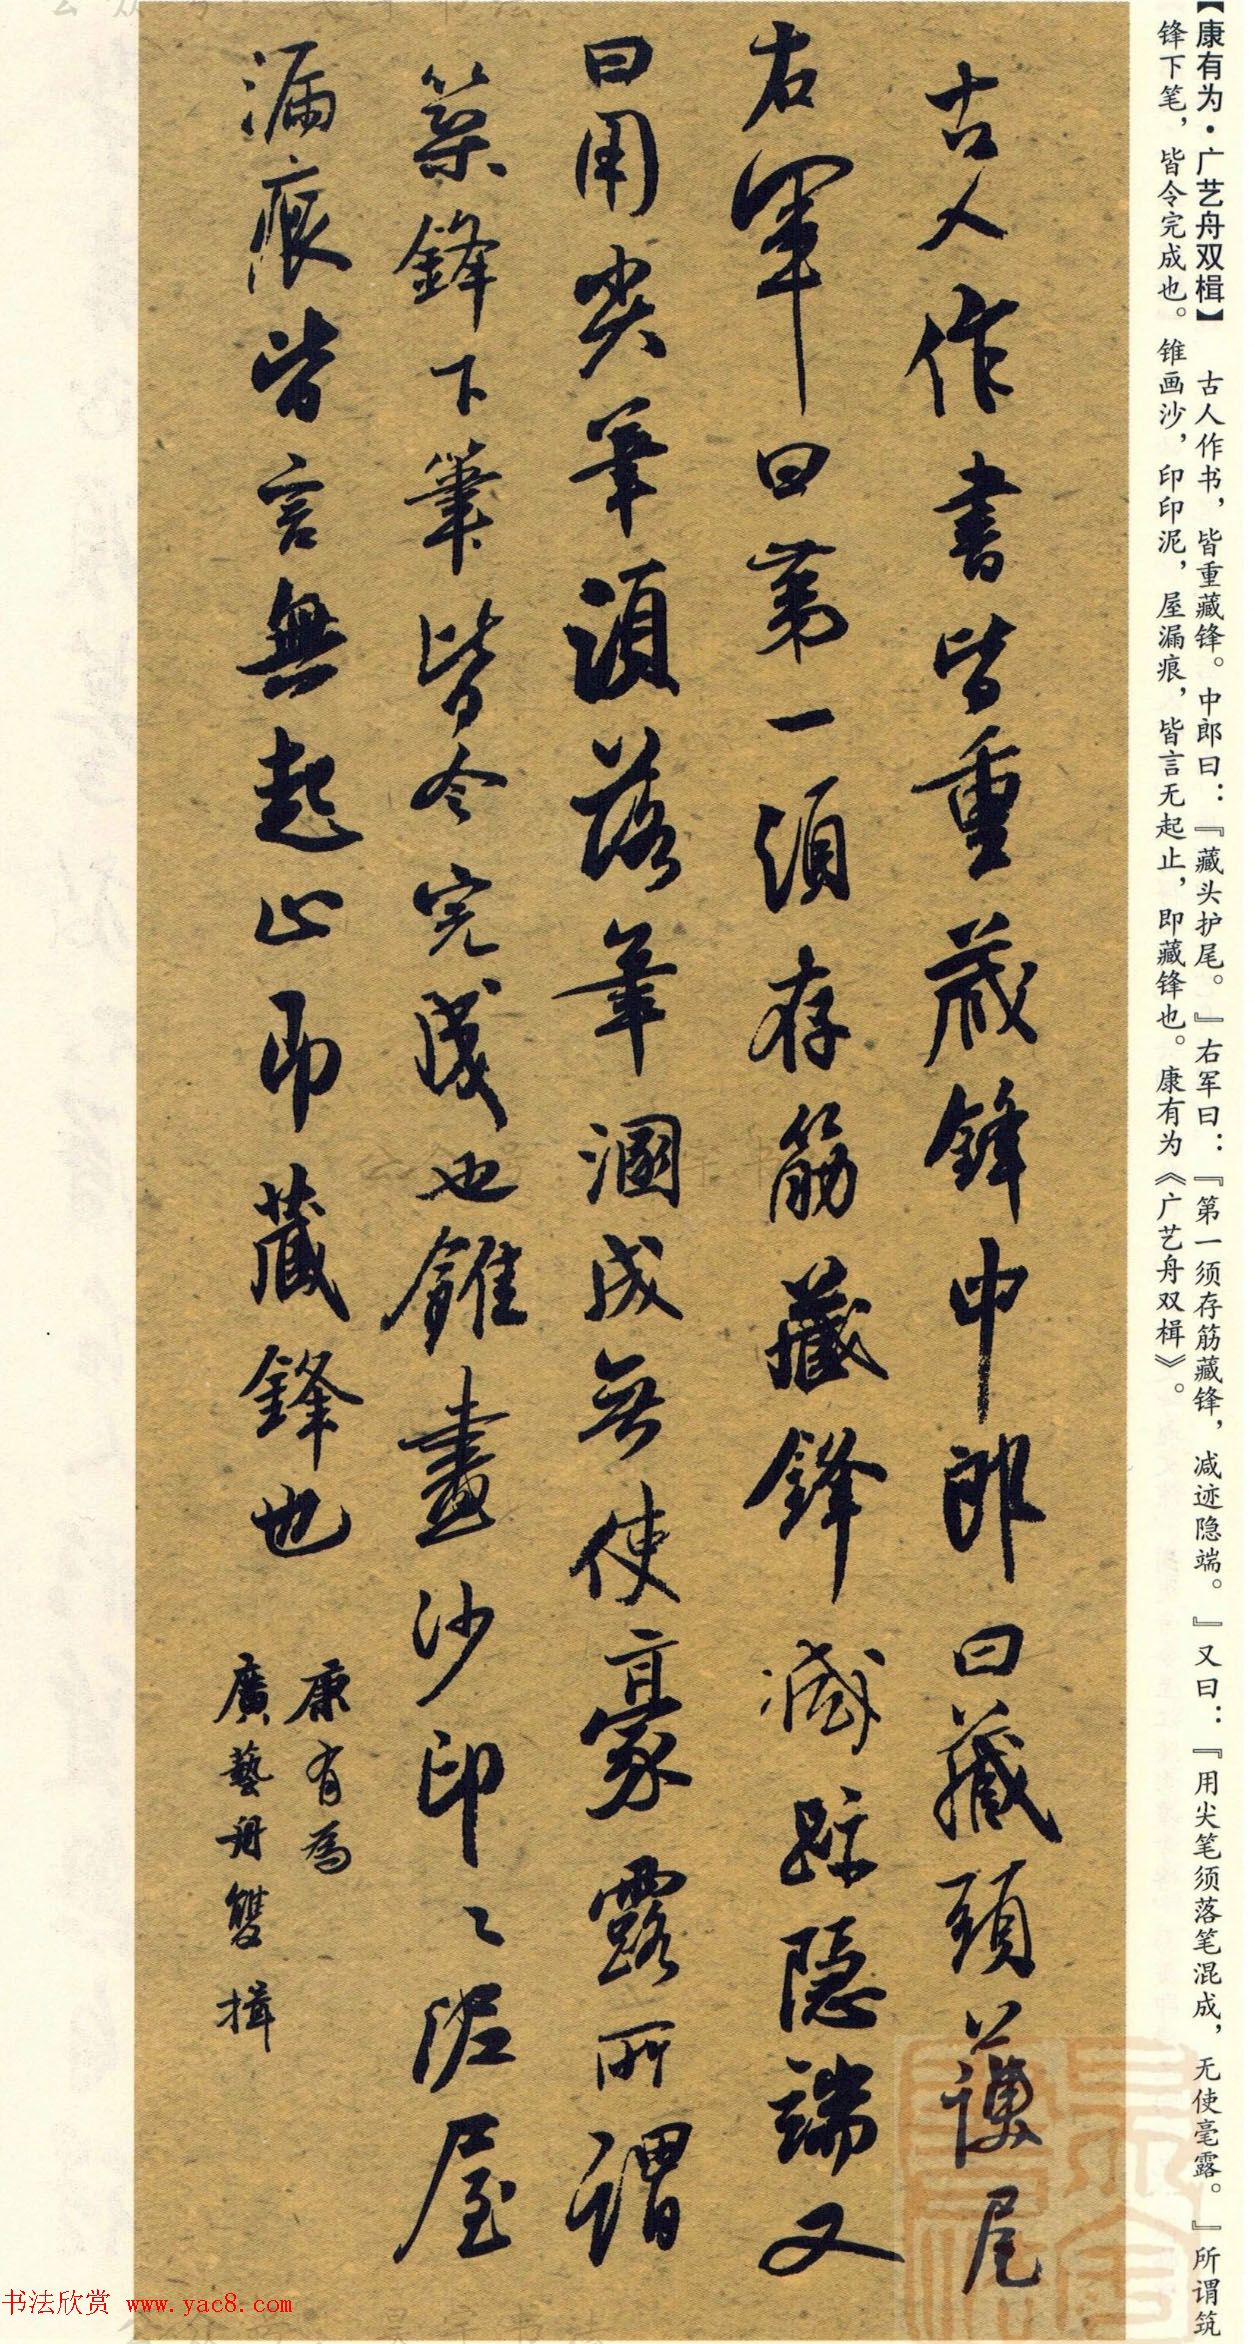 【康有为·广艺舟双楫】 古人作书，皆重藏锋。中郎曰：『藏头护尾。』右军曰：『第一须存筋藏锋，减迹隐端。』又曰：『用尖笔须落笔混成，无使毫露。』所谓筑
锋下笔，皆令完成也。锥画沙，印印泥，屋漏痕，皆言无起止，即藏锋也。康有为《广艺舟双楫》。
古人作書皆重藏鋒中郎曰藏頭護尾
右軍曰第一須存筋藏鋒減跡隱端又
曰用尖筆須落筆溷成無使豪露所謂
築鋒下筆皆令完成也錐畫沙印〻泥屋
漏痕皆言無起止即藏鋒也
康有為
廣藝舟雙楫
书法欣赏 www.yac8.com